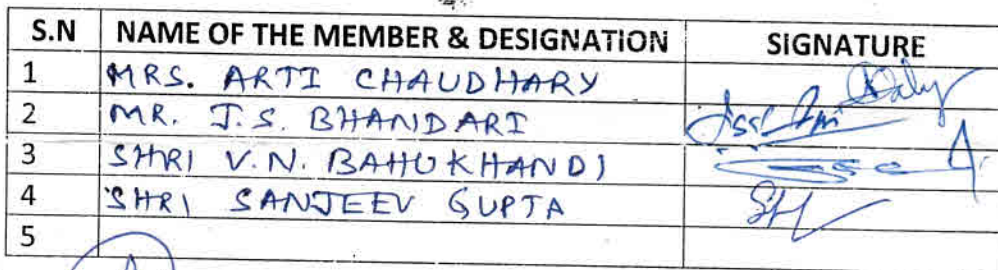 S.N NAME OF THE MEMBER & DESIGNATION SIGNATURE
1 MRS. ARTI CHAUDHARY
2 MR. J.S. BHANDARI
3 SHRI V.N. BAHUKHANDI
4 SHRI SANJEEV GUPTA
5